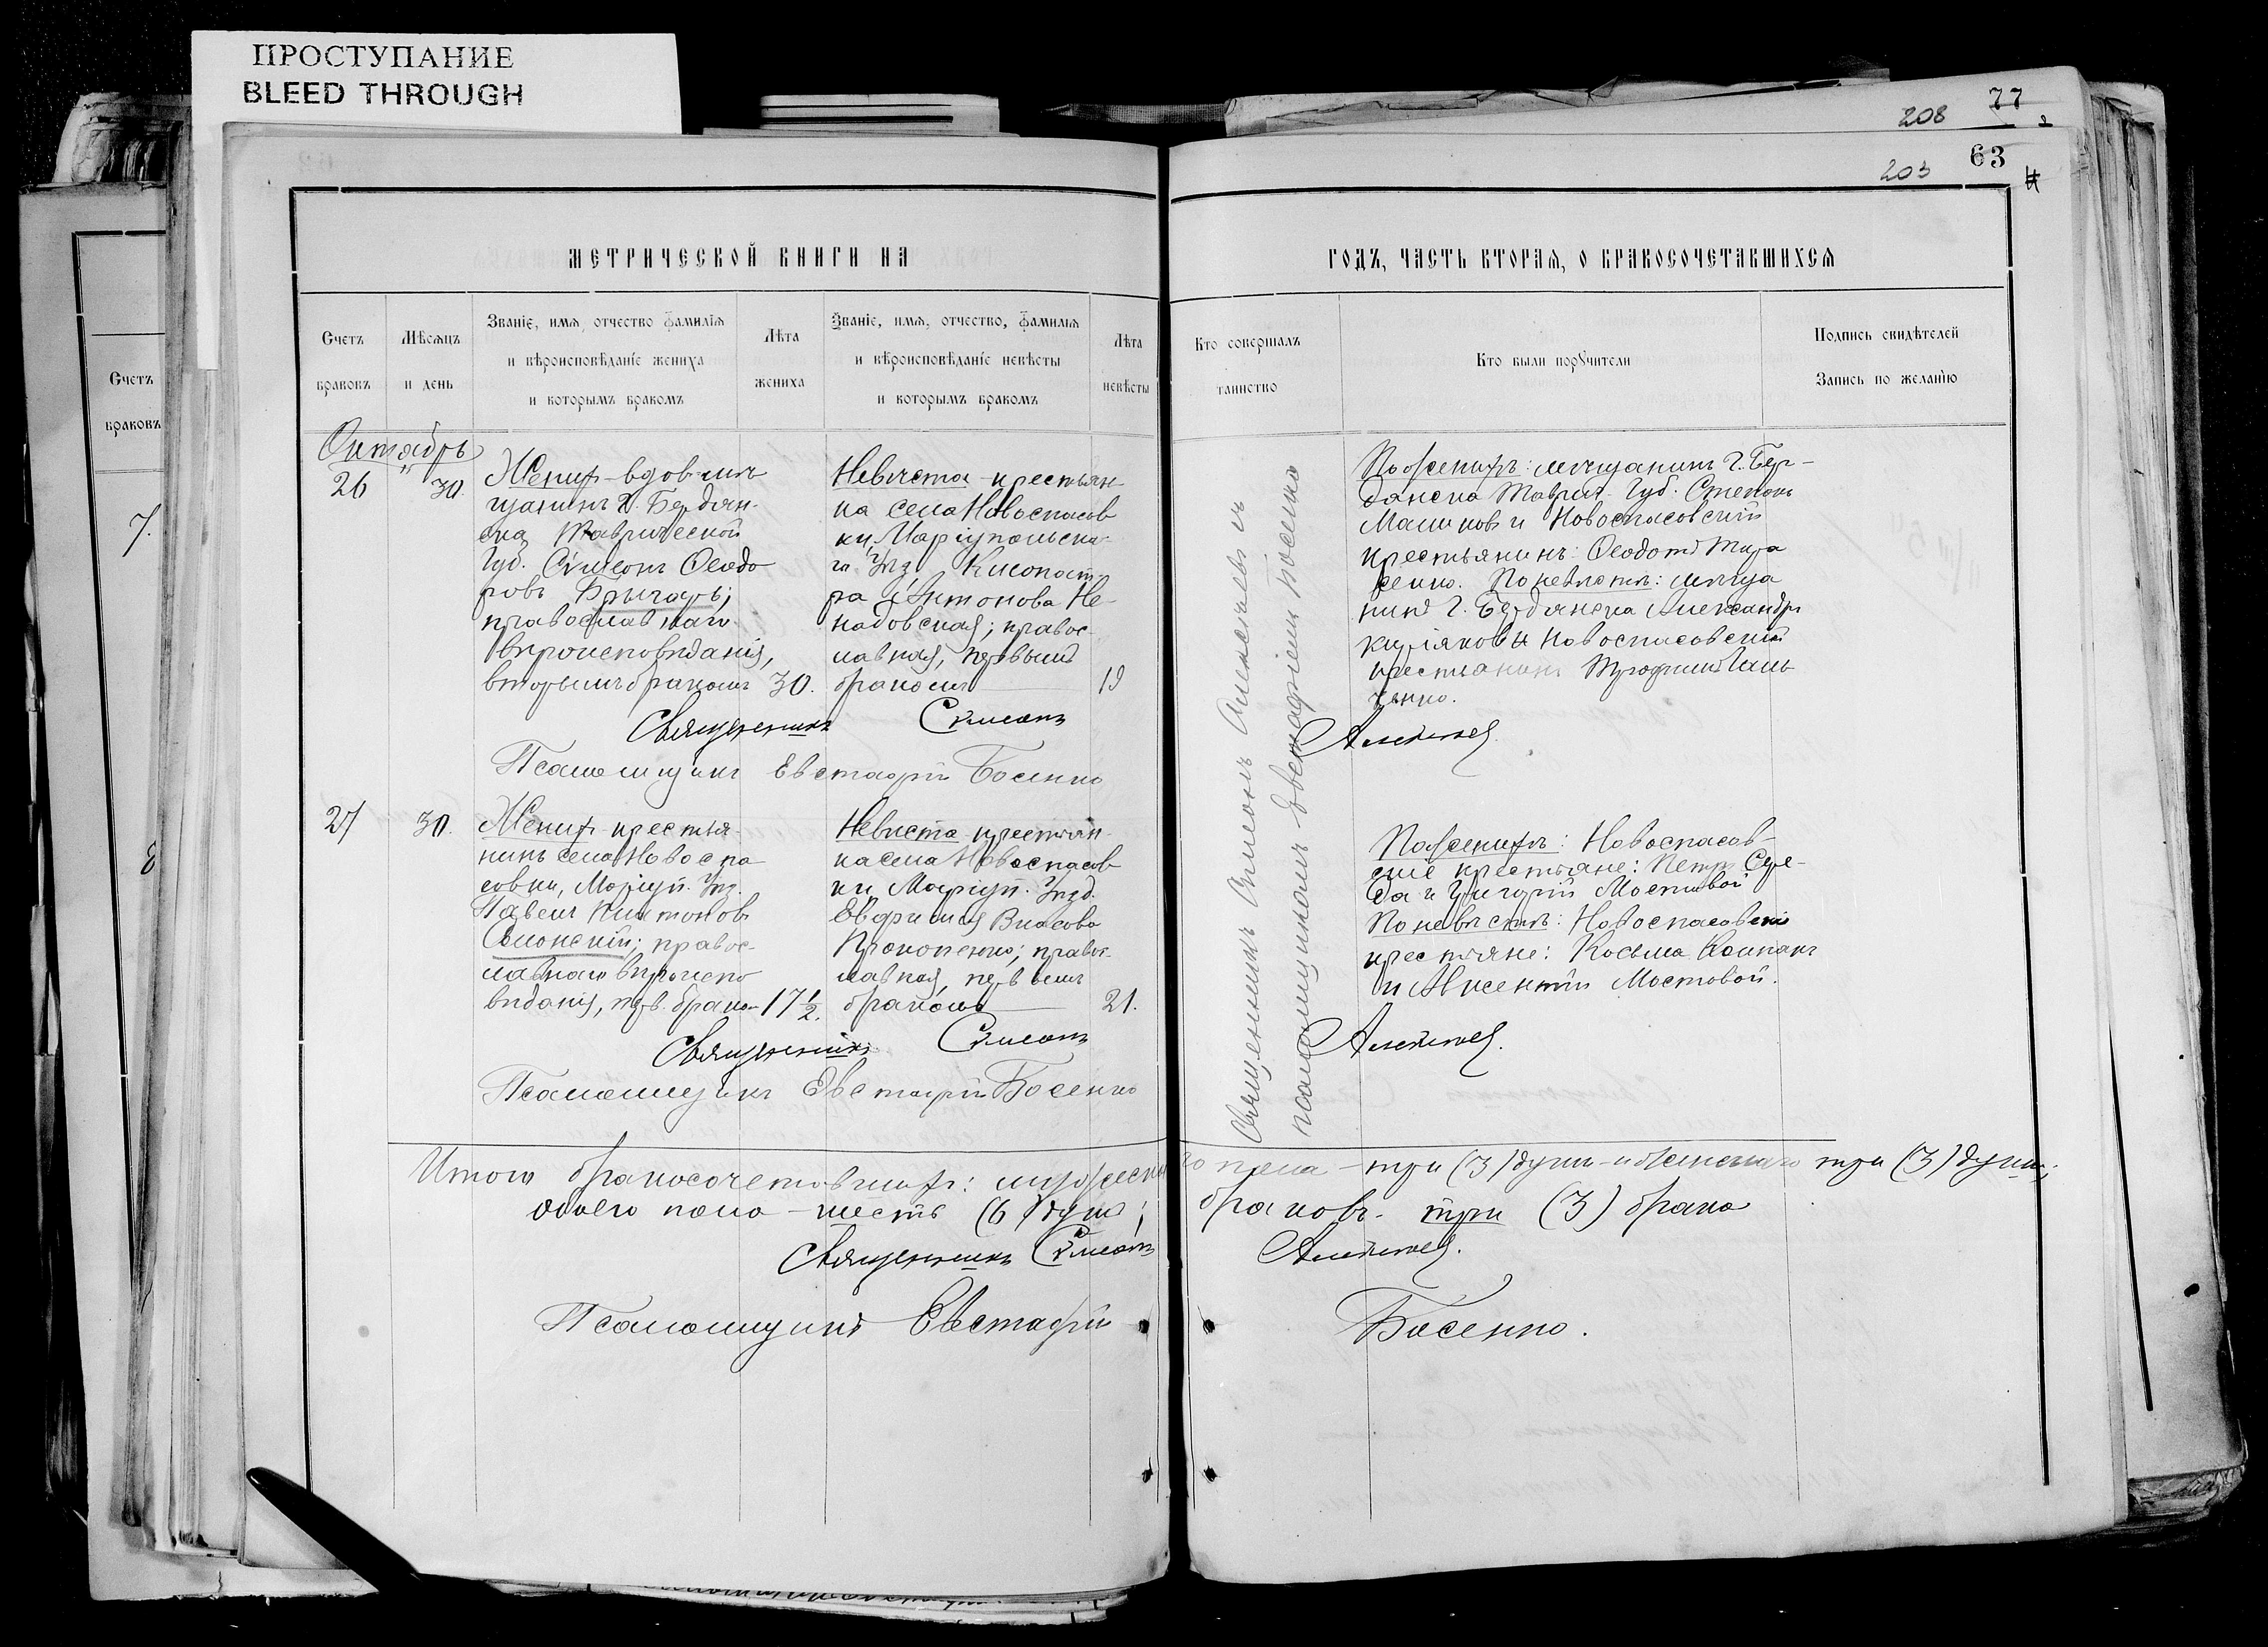 ПРОСТУПАНИЕ
BLEED THROUGH
208 77
203 63
МЕТРИЧЕСКОЙ КНИГИ НА
ГОДЪ, ЧАСТЬ ВТОРАЯ, О БРАКОСОЧЕТАВШИХСЯ
Счетъ
браковъ
Счетъ
браковъ
Мѣсяцъ
и день
Званіе, имя, отчество фамилія
и вѣроисповѣданіе жениха
и которымъ бракомъ
Лѣта
жениха
Званіе, имя, отчество, фамилія
и вѣроисповѣданіе невѣсты
и которымъ бракомъ
Лѣта
невѣсты
Кто совершалъ
таинство
Кто были поручители
Подпись свидѣтелей
Запись по желанію
7.
Октябрь
26
30.
Женихъ - вдов. мѣ-
щанинъ г. Бердян-
ска Таврической
Губ. Сѵмеонъ Ѳеодо
ровъ Бръчаръ;
православнаго
вѣроисповѣданія,
вторымъ бракомъ
30.
Невѣста - крестьян-
ка села Новоспасов
ки, Маріупольска-
го Уѣзд. Клеопат-
ра Антонова Не-
надовская; правос-
лавная, первымъ
бракомъ
19
Священникъ Сѵмеонъ
Псаломщикъ Евстафій Босенко
По женихѣ: мѣщанинъ г. Бер-
дянска Таврич. Губ. Стефанъ
Машковъ и Новоспасовскій
крестьянинъ: Ѳеодотъ Тара
сенко. По невѣстѣ: мѣща
нинъ г. Бердянска Александръ
и Новоспасовскій
крестьянинъ Трофимъ
Алексѣевъ
27
30.
Женихъ - крестья-
нинъ села Новоспа
совки, Маріуп. Уѣз.
Павелъ
Солонскій; правос-
лавнаго вѣроиспо
вѣданія, перв. брако-
17½.
Невѣста крестьян-
ка села Новоспасов
ки, Маріуп. Уѣзд.
Евфимія Власова
Прокопенко; правос-
лавная, первымъ
бракомъ
21.
Священникъ Сѵмеонъ
Псаломщикъ Евстафій Босенко
По женихѣ: Новоспасов-
скіе крестьяне: Петръ Сере-
да и Григорій Мостовой
По невѣстѣ: Новоспасовскіе
крестьяне: Косьма Колпакъ
и Авксентій Мостовой.
Алексѣевъ.
Священникъ Сѵмеонъ Алексѣевъ съ
псаломщикомъ Евстафіемъ Босенко
Итого бракосочетавшихъ: мужеска-
го пола - три (3) души - и женскаго три (3) души;
обоего пола - шесть (6) душъ;
браковъ - три (3) брака
Священникъ Сѵмеонъ
Алексѣевъ.
Псаломщикъ Евстафій
Босенко.